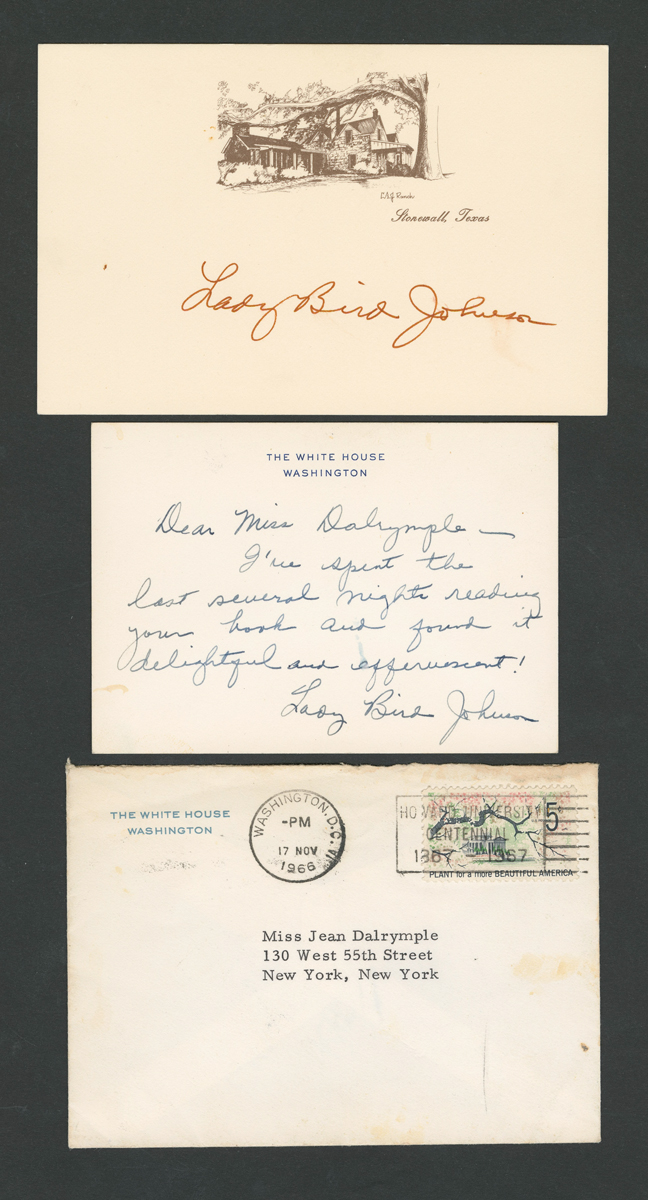 LBJ Ranch
Stonewall, Texas
Lady Bird Johnson
THE WHITE HOUSE
WASHINGTON
Dear Miss Dalrymple —
I've spent the
last several nights reading
your book and found it
delightful and effervescent!
Lady Bird Johnson
THE WHITE HOUSE
WASHINGTON
WASHINGTON, D.C.
-PM
17 NOV
1966
HOWARD UNIVERSITY
CENTENNIAL
1867 1967
5c
PLANT for a more BEAUTIFUL AMERICA
Miss Jean Dalrymple
130 West 55th Street
New York, New York